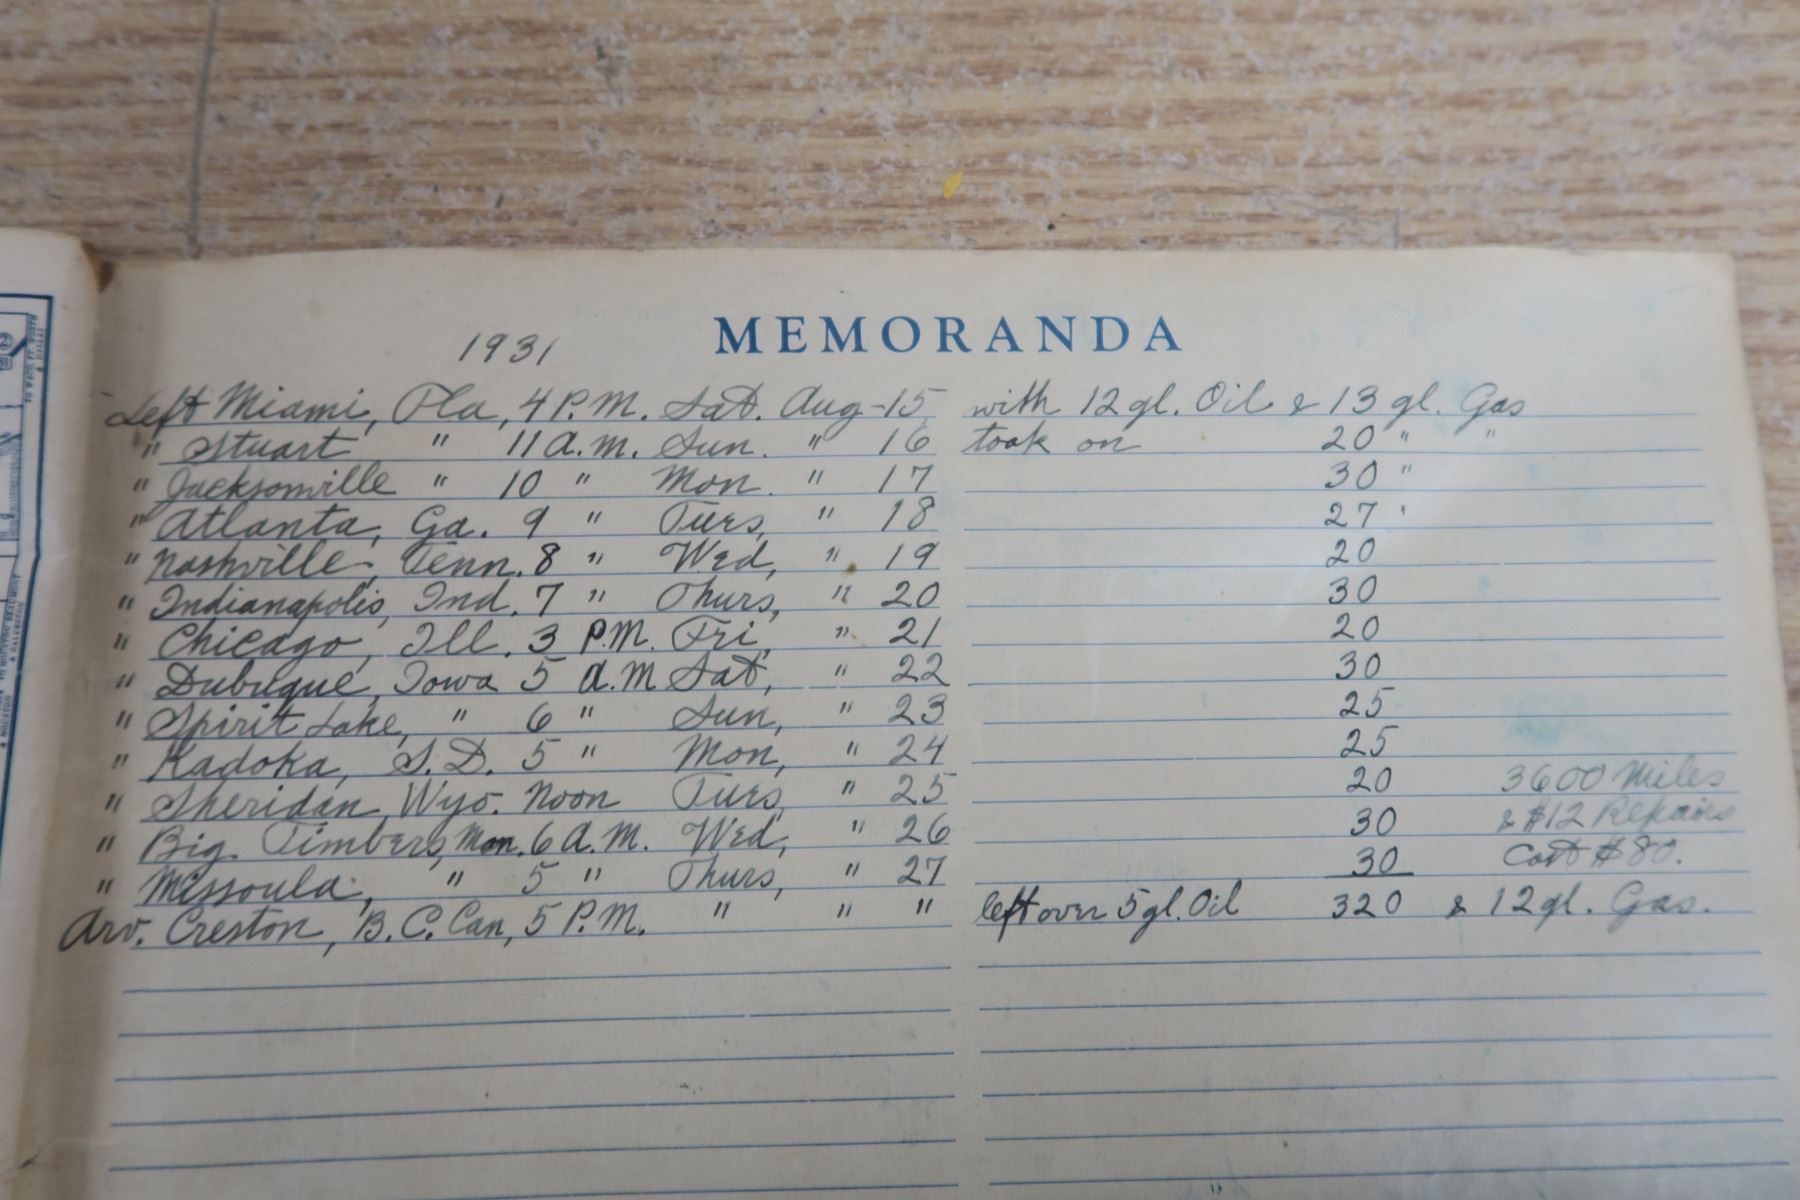 MEMORANDA
1931
Left Miami, Fla, 4 P.M. Sat. Aug-15 with 12 gl. Oil & 13 gl. Gas
" Stuart " 11 a.m. Sun. " 16 took on 20 " "
" Jacksonville " 10 " Mon. " 17 30 "
" Atlanta, Ga. 9 " Tues, " 18 27 "
" Nashville, Tenn. 8 " Wed, " 19 20
" Indianapolis, Ind. 7 " Thurs, " 20 30
" Chicago, Ill. 3 P.M. Fri, " 21 20
" Dubuque, Iowa 5 a.M Sat, " 22 30
" Spirit Lake, " 6 " Sun, " 23 25
" Kadoka, S.D. 5 " Mon, " 24 25
" Sheridan, Wyo. Noon Tues, " 25 20 3600 Miles
" Big Timbers, Mon. 6 a.M. Wed, " 26 30 & $12 Repairs
" Missoula, " 5 " Thurs, " 27 30 Cost $80.
Arv. Creston, B.C. Can, 5 P.M. " " " left over 5 gl. Oil 320 & 12 gl. Gas.